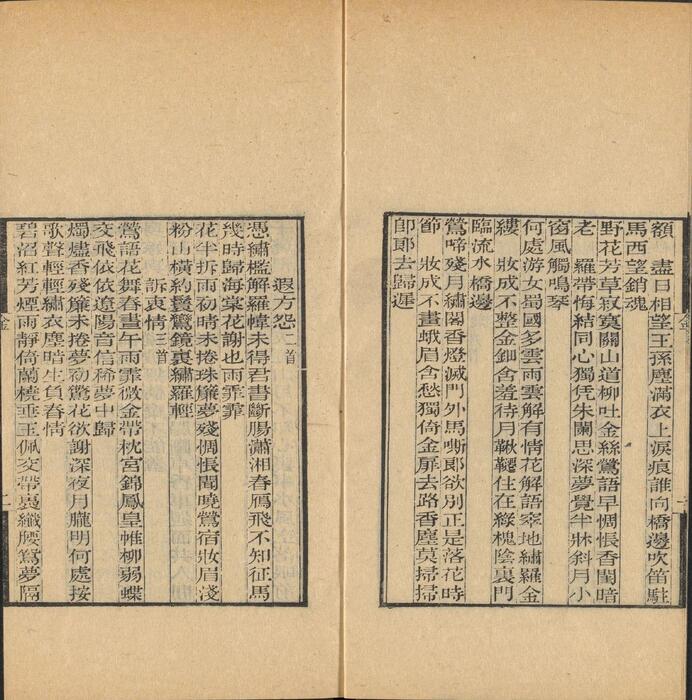 額　盡日相望王孫塵滿衣上淚痕誰向橋邊吹笛駐
馬西望銷魂
野花芳草寂寞關山道柳吐金絲鶯語早惆悵香閨暗
老　羅帶悔結同心獨凭朱闌思深夢覺半牀斜月小
窗風觸鳴琴
何處游女蜀國多雲雨雲解有情花解語窣地繡羅金
縷　妝成不整金鈿含羞待月鞦韆住在綠槐陰裏門
臨流水橋邊
鶯啼殘月繡閣香燈滅門外馬嘶郎欲別正是落花時
節　妝成不畫蛾眉含愁獨倚金扉去路香塵莫掃掃
即郎去歸遲
遐方怨二首
憑繡檻解羅幃未得君書斷腸瀟湘春鴈飛不知征馬
幾時歸海棠花謝也雨霏霏
花半拆雨初晴未捲珠簾夢殘惆悵聞曉鶯宿妝眉淺
粉山橫約鬟鸞鏡裏繡羅輕
訴衷情三首
鶯語花舞春晝午雨霏微金帶枕宮錦鳳皇帷柳弱蝶
交飛依依遼陽音信稀夢中歸
燭燼香殘簾未捲夢初驚花欲謝深夜月朧明何處按
歌聲輕輕繡衣塵暗生負春情
碧沼紅芳煙雨靜倚蘭橈垂玉佩交帶裊纖腰鴛夢隔
金
金
二